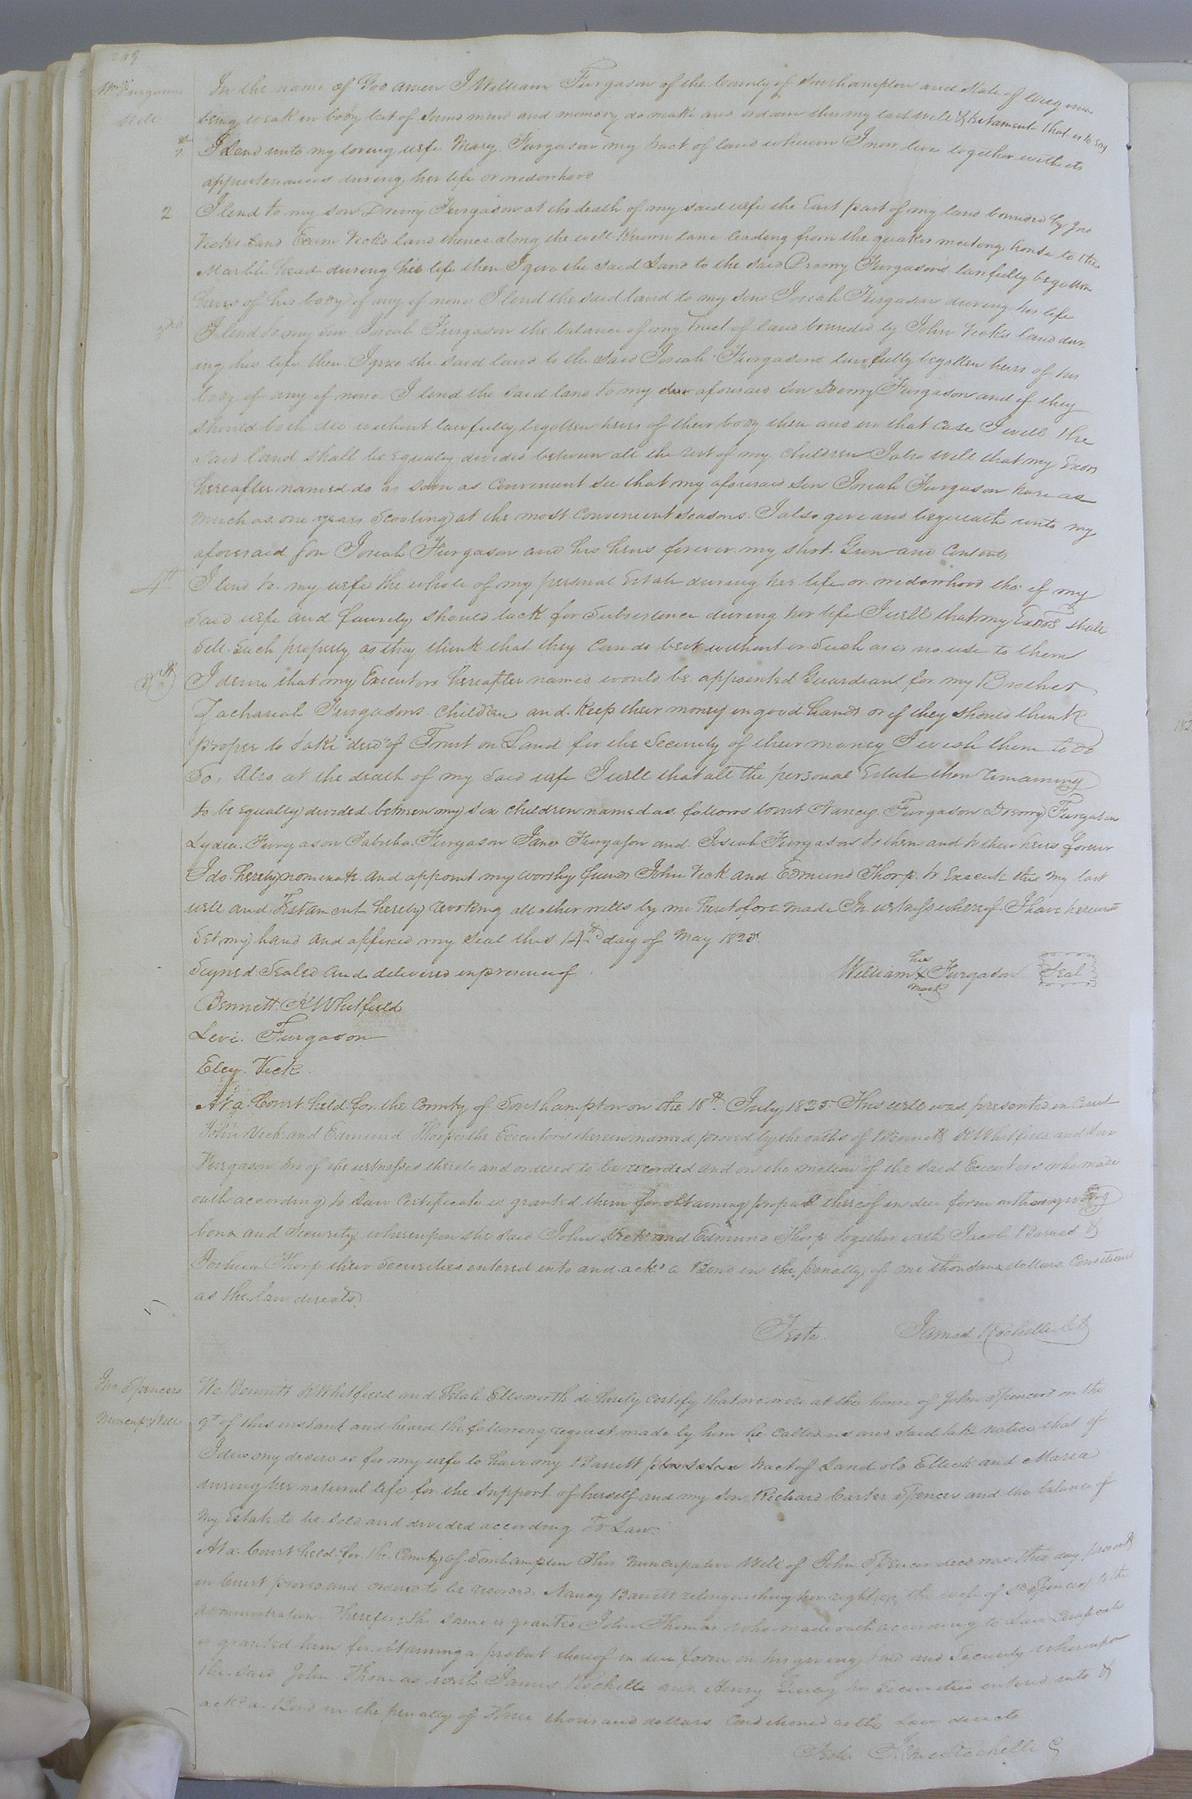 Wm Furgasons
Will
In the name of God amen I William Furgason of the County of Southampton and State of Virginia
being weak in body but of Sound mind and memory do make and ordain this my last will & testament that is to say
1st I Lend unto my loving wife Mary Furgason my tract of land whereon I now live together with its
appurtenances during her life or widowhood
2 I lend to my son Dremy Furgason at the death of my said wife the East part of my land bounded by Jno
Vicks Land Exum Vicks land thence along the well known lane leading from the quaker meeting house to the
Marble head during his life then I give the said Land to the said Dremy Furgasons lawfully begotten
heirs of his body if any if none I lend the said land to my son Josiah Furgason during his life
3rd I lend to my son Josiah Furgason the balance of my tract of land bounded by John Vicks land dur
ing his life then I give the said land to the said Josiah Furgasons lawfully begotten heirs of his
body if any if none I lend the said land to my aforesaid son Dremy Furgason and if they
should both die without lawfully begotten heirs of their body then and in that case I will the
said land shall be Equaly divided between all the rest of my Children I also will that my Exors
hereafter named do as soon as Convenient see that my aforesaid son Josiah Furgason have as
much as one years Scooling at the most Convenient seasons. I also give and bequeath unto my
aforesaid son Josiah Furgason and his heirs forever my shot Gun and
4th I lend to my wife the whole of my personal Estate during her life or widowhood tho' if my
said wife and family should lack for Subsistence during her life I will that my Exors shall
Sell Such property as they think that they can do best without or Such as is no use to them
5th I desire that my Executors hereafter named would be appointed Guardians for my Brother
Zachariah Furgasons Children and Keep their money in good hands or if they should think
proper to take deed of Trust on Land for the Security of their money I wish them to do
So, Also at the death of my said wife I will that all the personal Estate then remaining
to be equally divided between my six children named as follows towit Nancy Furgason Dremy Furgason
Lydia Furgason Tabitha Furgason Jane Furgason and Josiah Furgason to them and to their heirs forever
I do hereby nominate and appoint my worthy friends John Vick and Edmund Thorp to Execute this my last
will and Testament hereby revoking all other wills by me heretofore made In witness whereof I have hereunto
Set my hand and affixed my seal this 14th day of May 1825
Signed Sealed and delivered in presence of
William his X mark Furgason Seal
Bennett K Whitfield
Levi Furgason
Eley Vick
At a Court held for the County of Southampton on the 18th July 1825 This will was presented in Court
John Vick and Edmund Thorp the Executors therein named proved by the oaths of Bennett K Whitfield and Levi
Furgason two of the witnesses thereto and ordered to be recorded and on the motion of the said Executors who made
oath according to Law Certificate is granted them for obtaining probat thereof in due form on their giving
bond and Security whereupon the said John Vick and Edmund Thorp together with Jacob Barnes &
Joshua Thorp their securities entered into and ackd a Bond in the penalty of one thousand dollars Conditioned
as the law directs
Teste James Rochelle Ck
Jno Spencers
Nuncupt Will
We Bennett K Whitfield and Elsworth do hereby certify that we were at the house of John Spencers on the
9th of this instant and heard the following request made by him he Called us and said take notice that if
I die my desire is for my wife to have my Barrett tract of Land old Elleck and Maria
during her natural life for the support of herself and my son Richard Carter Spencer and the balance of
My Estate to be sold and divided according To Law
At a Court held for the County of Southampton This Nuncupative Will of John Spencer decd was this day presented
in Court proved and ordered to be record. Nancy Barrett relinquishing her right the of sd Spencer to the
administration Therefore the same is granted John Thomas who made oath according to Law Certificate
is granted him for obtaining a probat thereof in due form on his giving bond and Security Whereupon
the said John Thomas with James Rochelle and Henry his Securities entered into &
ackd a Bond in the penalty of Three thousand dollars Conditioned as the Law directs
Teste James Rochelle C